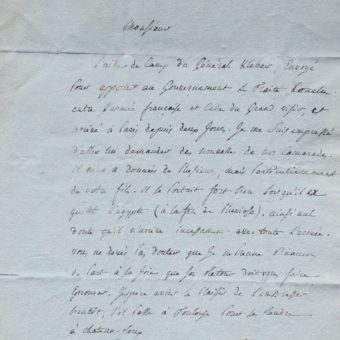 Monsieur
L'aide de Camp du Général Kleber, Envoyé
Pour apporter au Gouvernement le Traité
entre l'armée française et Celle du Grand visir, est
arrivé à Paris depuis deux jours. Je me suis empressé
d'aller lui demander des nouvelles de nos Camarades,
il m'en a données de plusieurs, mais particulièrement
de votre fils. il se portait fort bien lorsqu'il a
quitté l'Egypte (à la fin de Pluviose). ainsi nul
doute qu'il n'arrive incessamment avec toute l'armée.
vous ne devez pas douter que Je ne prenne Beaucoup
de part à la Joie que son retour doit vous faire
éprouver. J'espère avoir le Plaisir de l'embrasser
bientôt, s'il passe à Toulouse Pour se rendre
à chateau-roux